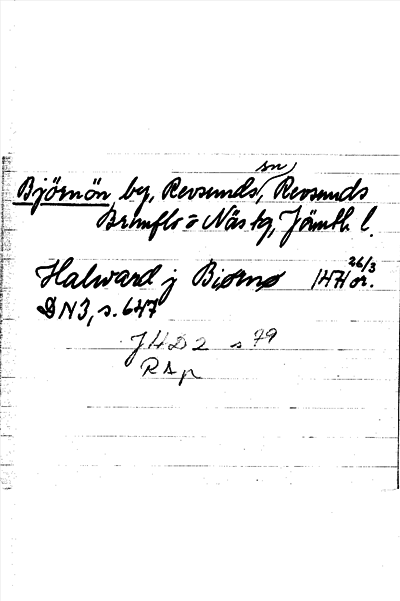 Björnön by, Revsunds sn, Revsunds
Brunflo o Näs tg, Jämtl l.
Halward j Biørnø 26/3 1471 or.
DN3, s. 647
JHD 2 s 79
RAp